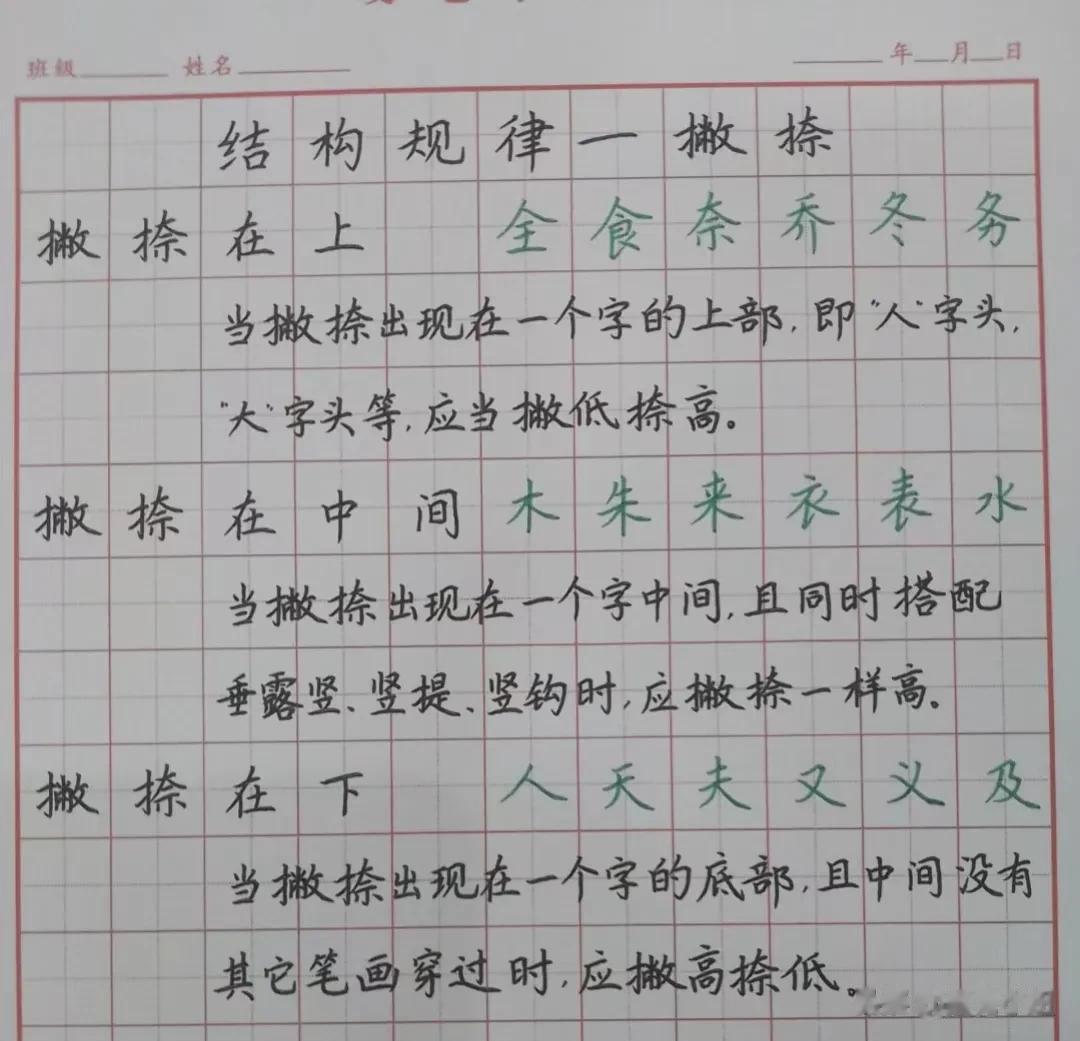 班级 姓名 年 月 日
结构规律一撇捺
撇捺在上 全食奈乔冬务
当撇捺出现在一个字的上部,即“人”字头,
“大”字头等,应当撇低捺高。
撇捺在中间 木朱来衣表水
当撇捺出现在一个字中间,且同时搭配
垂露竖、竖提、竖钩时,应撇捺一样高。
撇捺在下 人天夫又义及
当撇捺出现在一个字的底部,且中间没有
其它笔画穿过时,应撇高捺低。